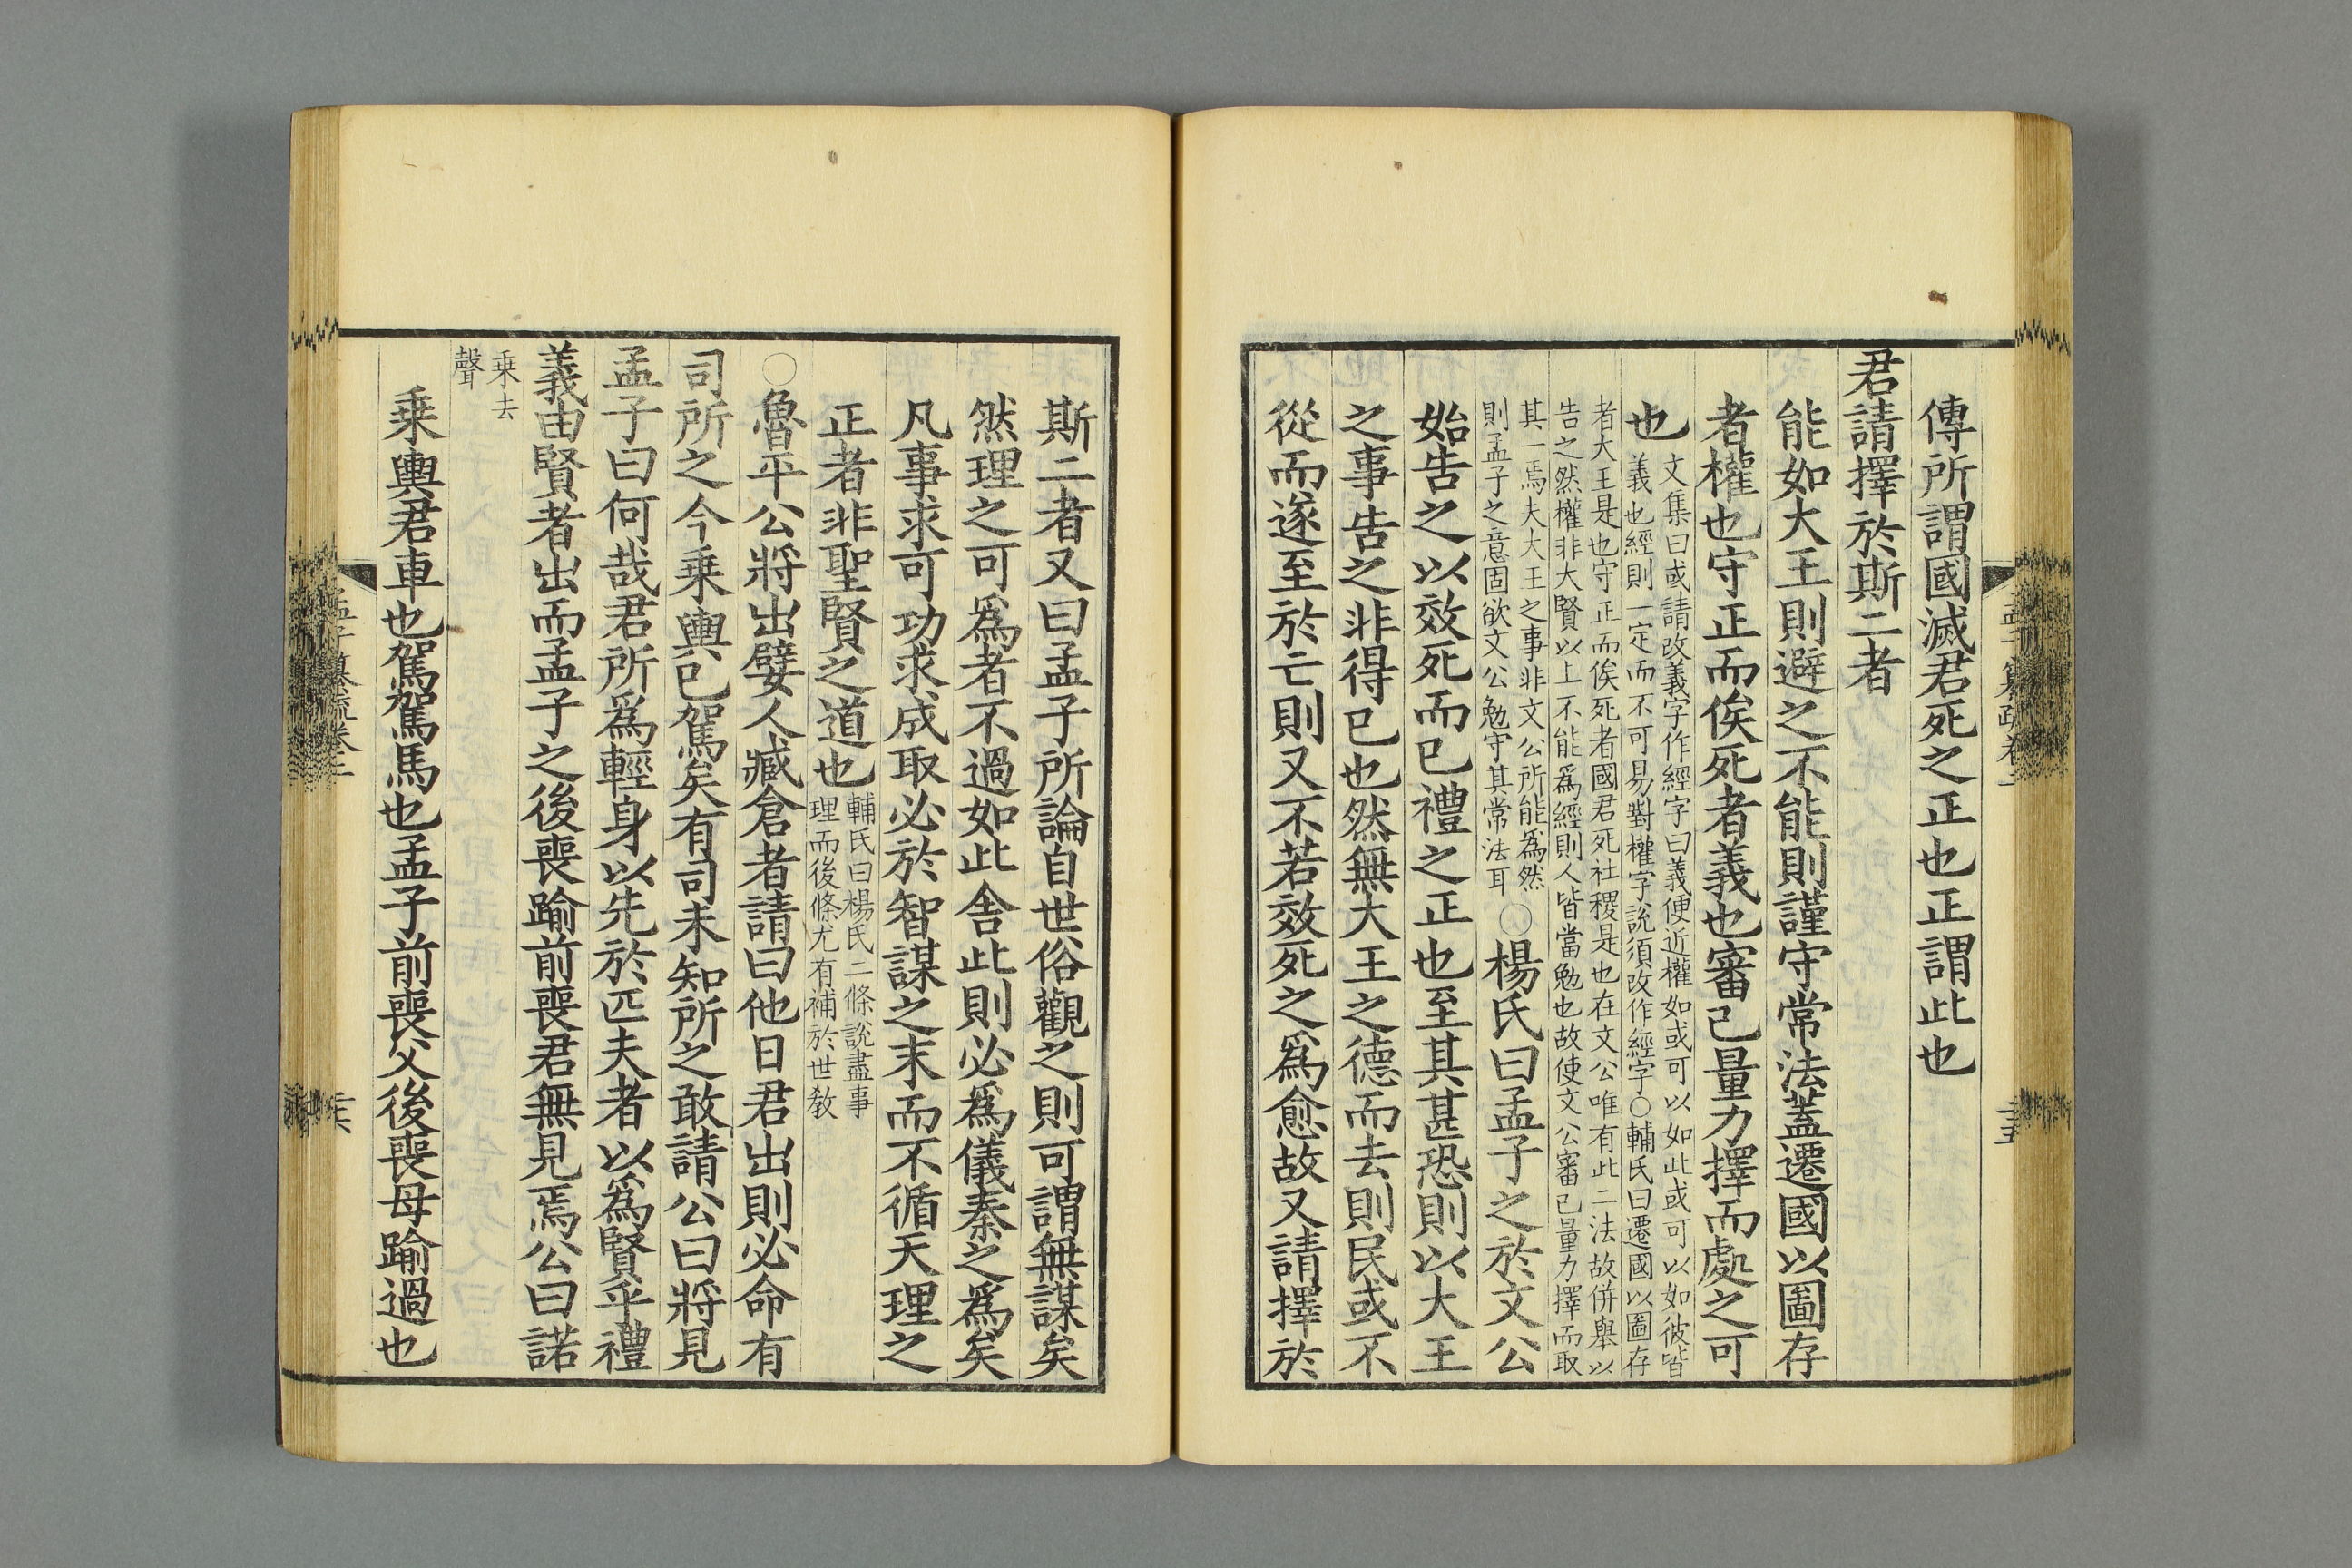 傳所謂國滅君死之正也正謂此也
君請擇於斯二者
能如大王則避之不能則謹守常法蓋遷國以圖存
者權也守正而俟死者義也審己量力擇而處之可
也
文集曰或請改義字作經字曰義便近權如或可以如此或可以如彼皆
義也經則一定而不可易對權字說須改作經字○輔氏曰遷國以圖存
者大王是也守正而俟死者國君死社稷是也在文公唯有此二法故併舉以
告之然權非大賢以上不能爲經則人皆當勉也故使文公審己量力擇而取
其一焉夫大王之事非文公所能爲然
則孟子之意固欲文公勉守其常法耳
○楊氏曰孟子之於文公
始告之以效死而已禮之正也至其甚恐則以大王
之事告之非得已也然無大王之德而去則民或不
從而遂至於亡則又不若效死之爲愈故又請擇於
孟子纂疏卷二
斯二者又曰孟子所論自世俗觀之則可謂無謀矣
然理之可爲者不過如此舍此則必爲儀秦之爲矣
凡事求可功求成取必於智謀之末而不循天理之
正者非聖賢之道也
輔氏曰楊氏二條說盡事
理而後條尤有補於世教
○魯平公將出嬖人臧倉者請曰他日君出則必命有
司所之今乘輿已駕矣有司未知所之敢請公曰將見
孟子曰何哉君所爲輕身以先於匹夫者以爲賢乎禮
義由賢者出而孟子之後喪踰前喪君無見焉公曰諾
乘去
聲
乘輿君車也駕駕馬也孟子前喪父後喪母踰過也
孟子纂疏卷二